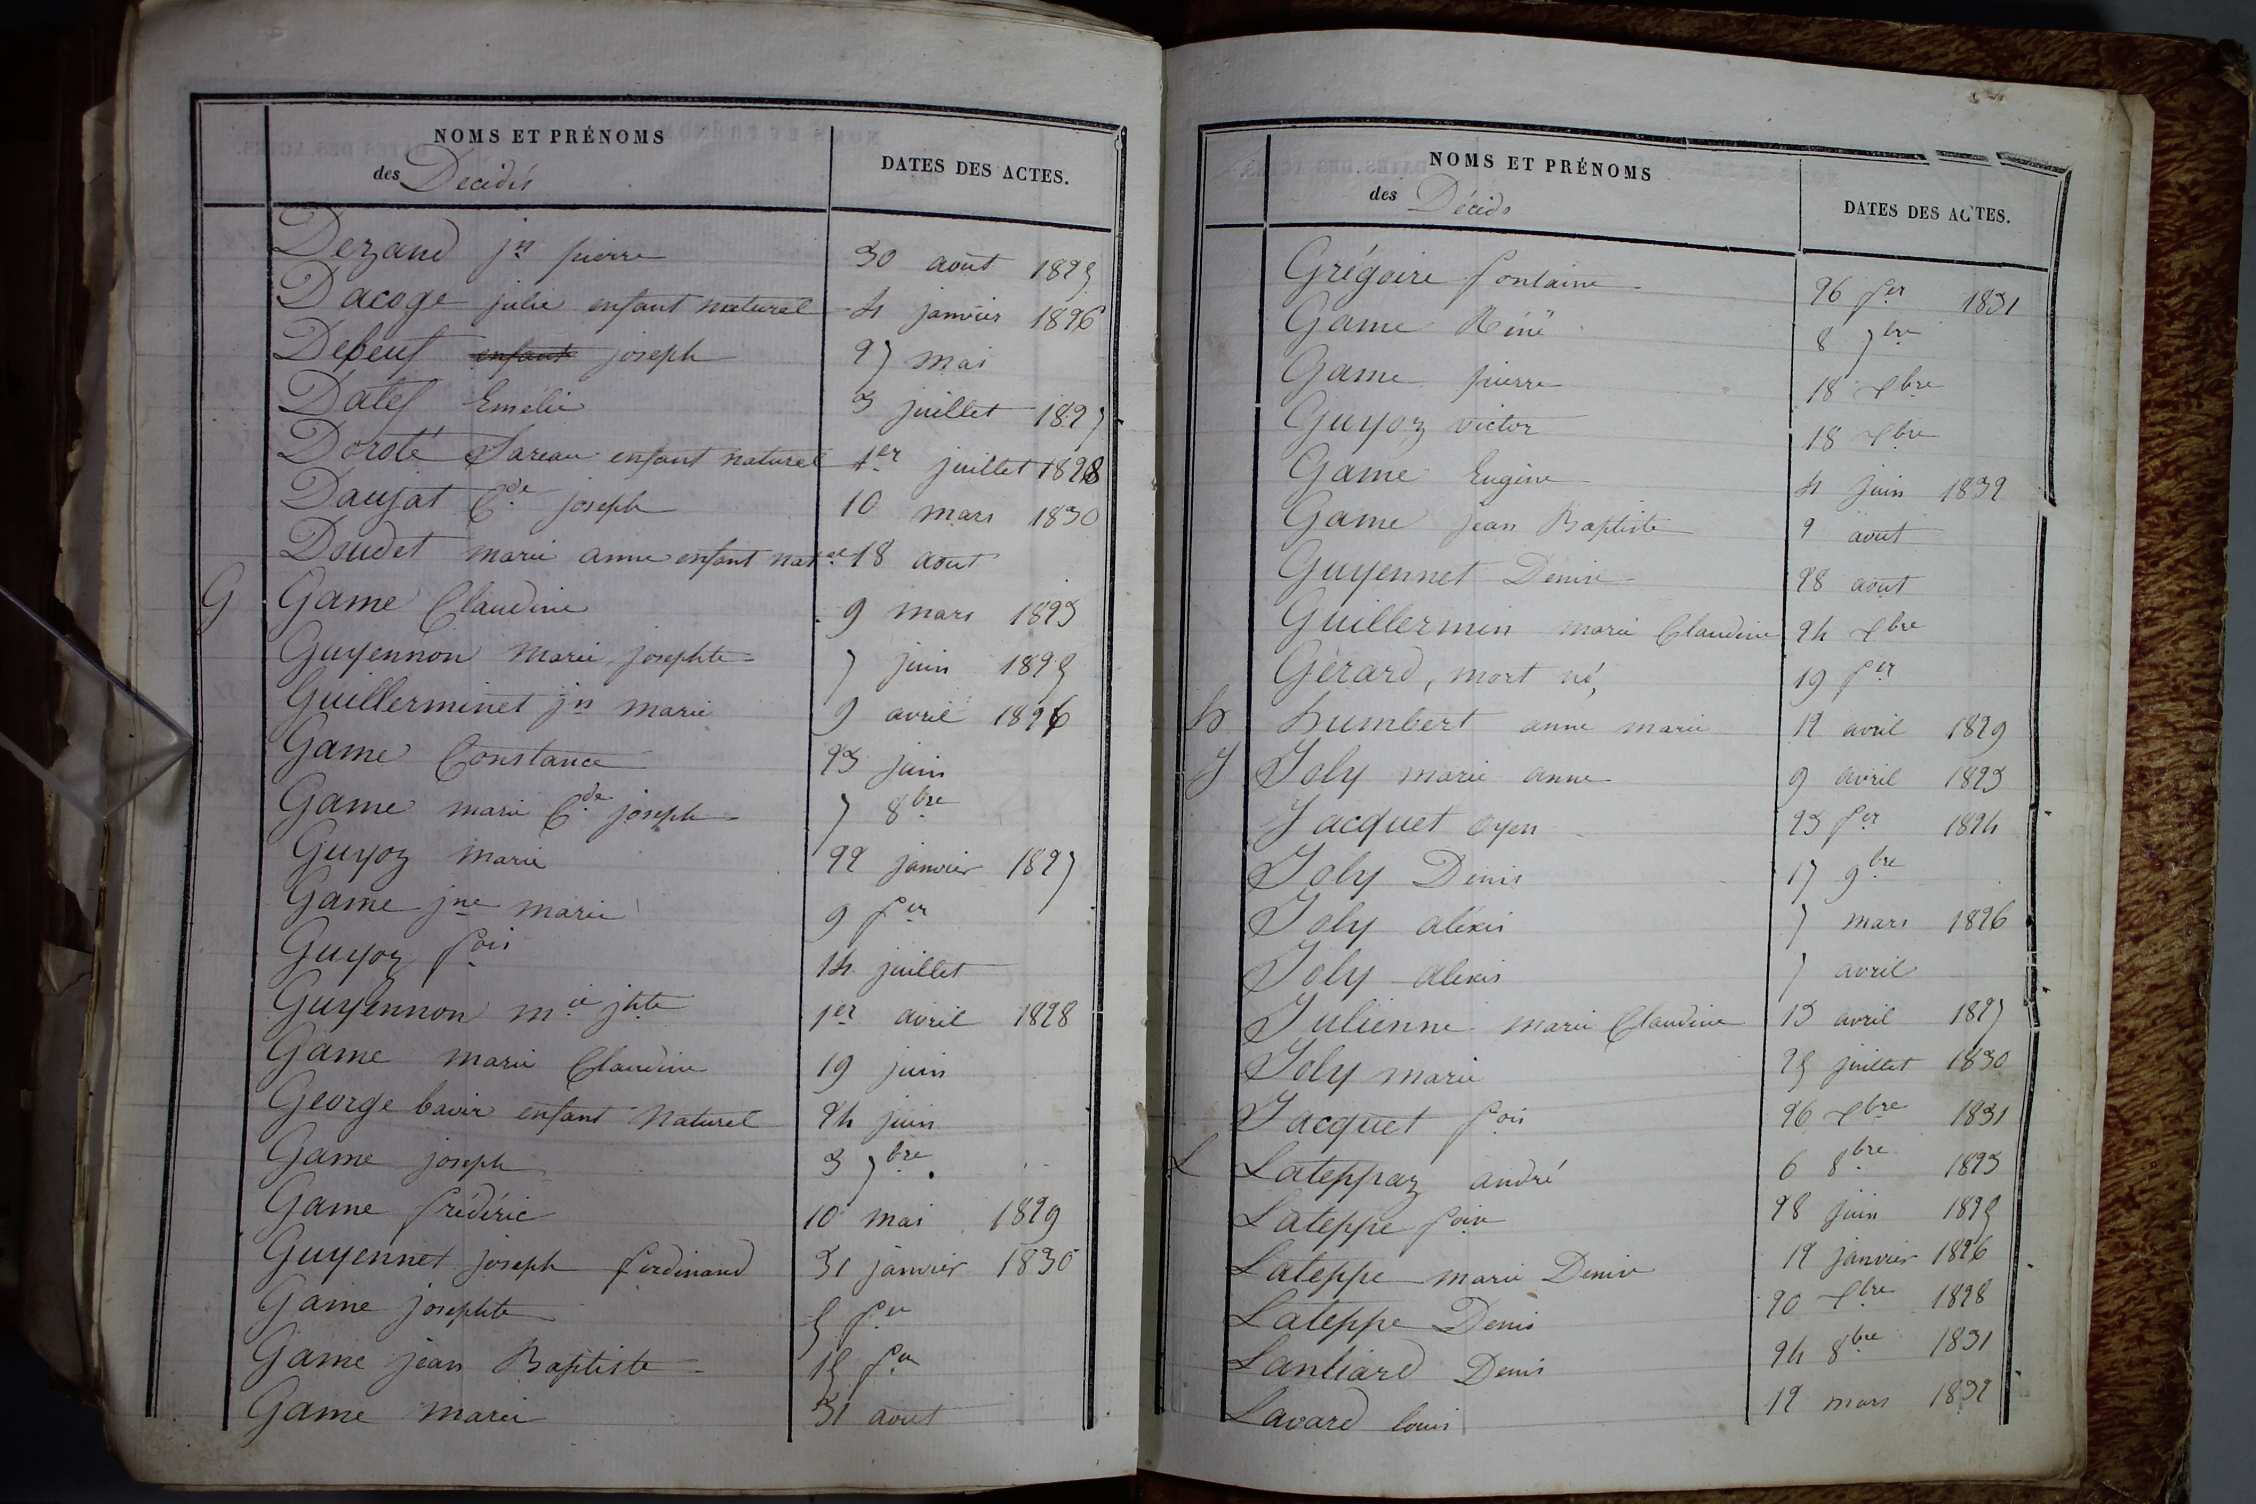 NOMS ET PRÉNOMS
des Décédés
DATES DES ACTES.
Dezand jn pierre 30 août 1825
Dacoge julie enfant naturel 4 janvier 1826
Debeuf enfant joseph 27 mai
Datef Emélie 3 juillet 1827
Doroté Sareau enfant naturel 1er juillet 1828
Daujat Cde joseph 10 mars 1830
Doudet marie anne enfant natel 18 aout
G Game Claudine 9 mars 1823
Guyennon Marie josephte 7 juin 1825
Guillerminet jn marie 9 avril 1826
Game Constance 23 juin
Game marie Cde joseph 7 8bre
Guyoz marie 22 janvier 1827
Game jne marie 9 fer
Guyoz fois 14 juillet
Guyennon mie jhte 1er avril 1828
Game marie Claudine 19 juin
George bavir enfant Naturel 24 juin
Game joseph 3 7bre
Game frédéric 10 mai 1829
Guyennet joseph ferdinand 31 janvier 1830
Game josephte 5 fer
Game jean Baptiste 15 fer
Game marie 31 aout
NOMS ET PRÉNOMS
des Décédés
DATES DES ACTES.
Grégoire fontaine 26 fer 1831
Game Réné 8 7bre
Game pierre 18 xbre
Guyoz victor 18 xbre
Game Eugène 4 juin 1832
Game jean Baptiste 9 aout
Guyennet Denise 28 aout
Guillermin marie Claudine 24 xbre
Gérard, mort né, 19 fer
h humbert anne marie 12 avril 1829
J Joly marie anne 9 avril 1823
Jacquet oyen 23 fer 1824
Joly Denis 17 9bre
Joly aléxis 7 mars 1826
Joly alexis 7 avril
Julienne marie Claudine 13 avril 1827
Joly marie 25 juillet 1830
Jacquet fois 26 xbre 1831
L Lateppaz andré 6 8bre 1823
Lateppe foise 28 juin 1825
Lateppe marie Denise 12 janvier 1826
Lateppe Denis 20 xbre 1828
Lantiard Denis 24 8bre 1831
Lavard louis 12 mars 1832